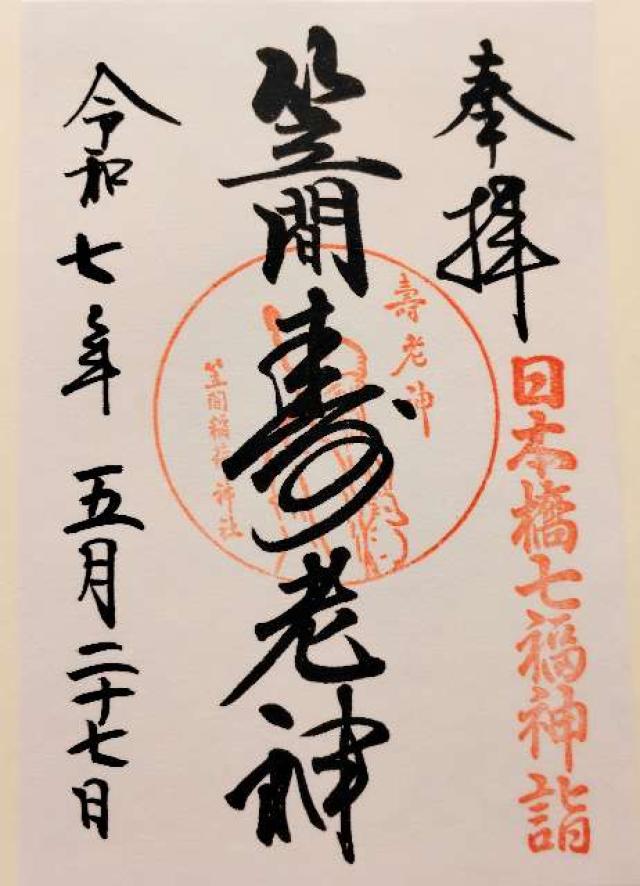 奉拝
日本橋七福神詣
笠間寿老神
壽老神
笠間稲荷神社
令和七年 五月二十七日